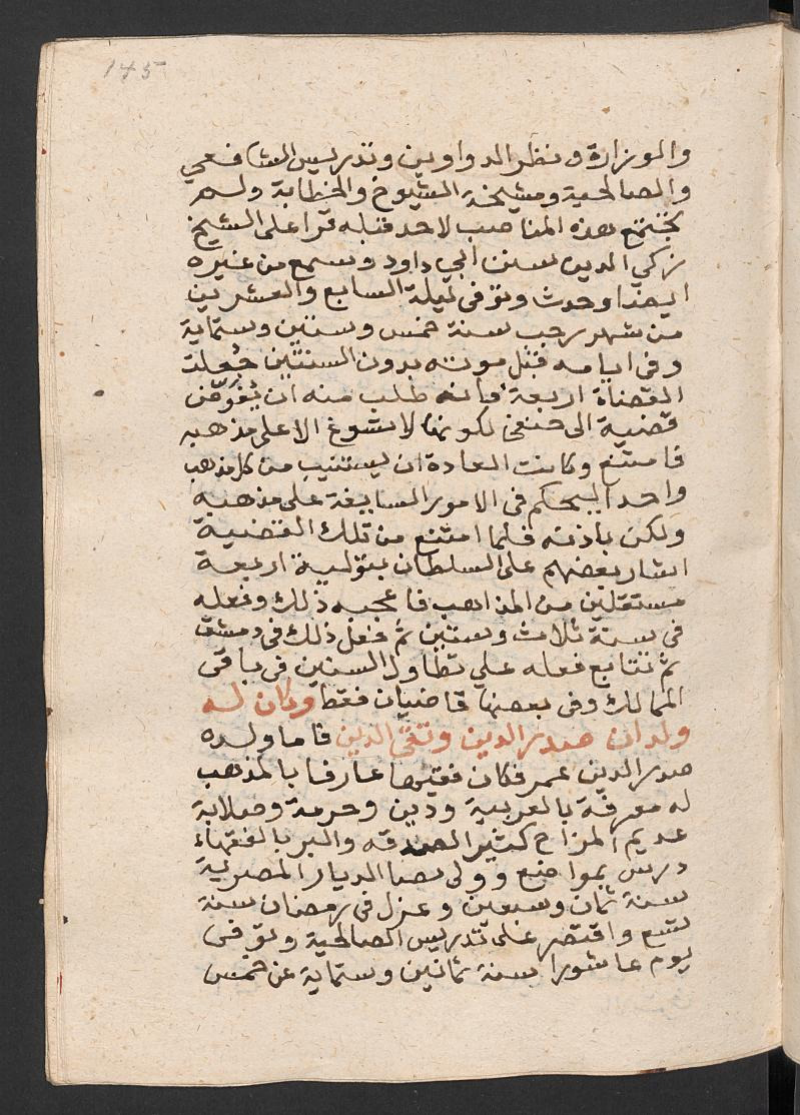 145
والوزارة ونظر الدواوين وتدريس الشافعي
والصالحية ومشيخة الشيوخ والخطابة ولم
تجتمع هذه المناصب لاحد قبله قرا على الشيخ
زكي الدين سنن ابي داود وسمع من غيره
ايضا وحدث وتوفى ليلة السابع والعشرين
من شهر رجب سنة خمس وستين وستماية
وفى ايامه قبل موته بدون السنتين جُعلت
القضاة اربعة فانه طلب منه ان يُفَوّض
قضية الى حنفى لكونها لا تسوغ الا على مذهبه
فامتنع وكانت العادة ان يستنيب من كل مذهب
واحدا ليحكم فى الامور السايغة على مذهبه
ولكن باذنه فلما امتنع من تلك القضية
اشار بعضهم على السلطان بتولية اربعة
مستقلين من المذاهب فاعجبه ذلك وفعله
فى سنة ثلاث وستين ثم فعل ذلك فى دمشق
ثم تتابع فعله على تطاول السنين فى باقى
الممالك وفى بعضها قاضيان فقط وكان له
ولدان صدر الدين وتقى الدين فاما ولده
صدر الدين عمر فكان فقيها عارفا بالمذهب
له معرفة بالعربية ودين وحرمة وصلابة
عديم المزاح كثير الصدقه والبر بالفقهاء
درس بمواضع وولى قضا الديار المصرية
سنة ثمان وسبعين وعزل فى رمضان سنة
تسع واقتصر على تدريس الصالحية وتوفى
يوم عاشورا سنة ثمانين وستماية عن خمس